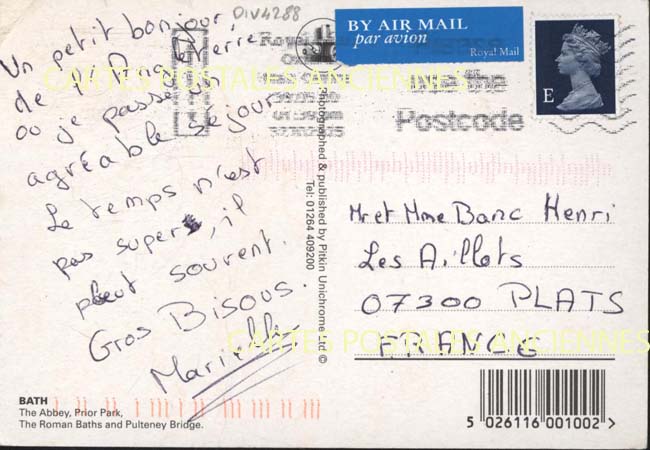 DIV4288
BY AIR MAIL
par avion
Royal Mail
E
Un petit bonjour
de l'Angleterre
où je passe un
agréable séjour
Le temps n'est
pas super, il
pleut souvent.
Gros Bisous.
use the
Postcode
Photographed & published by Pitkin Unichrome Ltd ©
Tel: 01264 409200
Mr et Mme Banc Henri
Les Aillots
07300 PLATS
FRANCE
CARTES POSTALES ANCIENNES
CARTES POSTALES ANCIENNES
BATH
The Abbey, Prior Park,
The Roman Baths and Pulteney Bridge.
5 026116 001002 >